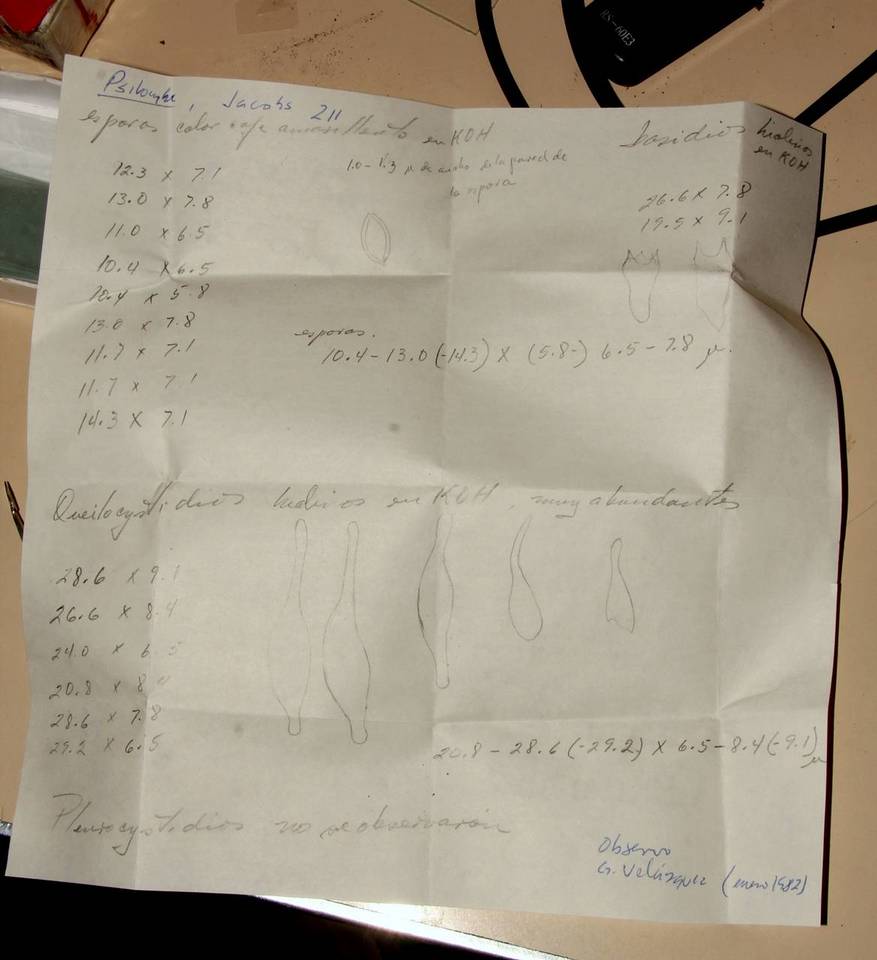 RS-60E3
Psilocybe, Jacobs 211
esporas color cafe amarillento en KOH
1.0-1.3 μ de ancho de la pared de
la espora
12.3 x 7.1
13.0 x 7.8
11.0 x 6.5
10.4 x 6.5
10.4 x 5.8
13.0 x 7.8
11.7 x 7.1
11.7 x 7.1
14.3 x 7.1
basidios hialinos
en KOH
26.6 x 7.8
19.5 x 9.1
esporas.
10.4-13.0 (-14.3) x (5.8-) 6.5-7.8 μ.
Queilocystidios hialinos en KOH, muy abundantes
28.6 x 9.1
26.6 x 8.4
24.0 x 6.5
20.8 x
28.6 x 7.8
29.2 x 6.5
20.8-28.6 (-29.2) x 6.5-8.4 (-9.1) μ
Pleurocystidios no se observaron
Observo
G. Velázquez (enero 1982)